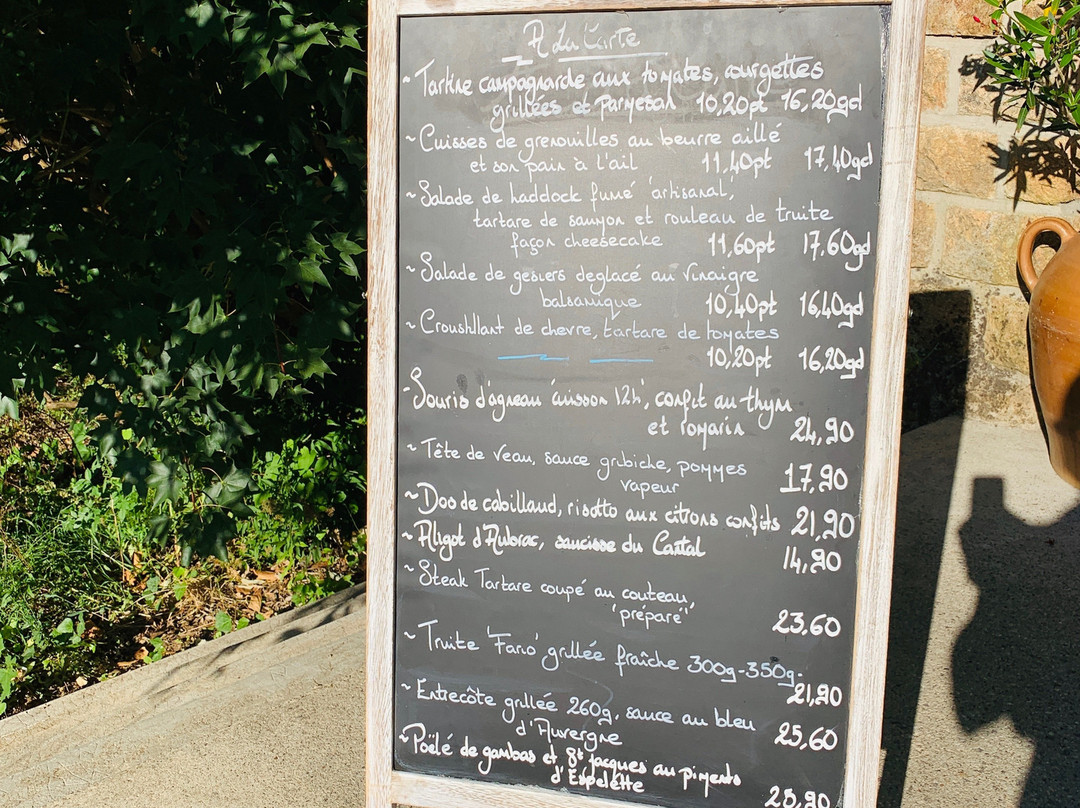 A La Carte
~ Tartine campagnarde aux tomates, courgettes
grillées et Parmesan 10,20pt 16,20gd
~ Cuisses de grenouilles au beurre aillé
et son pain à l'ail 11,40pt 17,40gd
~ Salade de haddock fumé 'artisanal',
tartare de saumon et rouleau de truite
façon cheesecake 11,60pt 17,60gd
~ Salade de gesiers deglacé au Vinaigre
balsamique 10,40pt 16,40gd
~ Croustillant de chevre, tartare de tomates
10,20pt 16,20gd
~ Souris d'agneau 'cuisson 12h', confit au thym
et romarin 24,90
~ Tête de Veau, sauce gribiche, pommes
vapeur 17,90
~ Dos de cabillaud, risotto aux citrons confits 21,90
~ Aligot d'Aubrac, saucisse du Cantal
14,90
~ Steak Tartare coupé au couteau
'préparé' 23,60
~ Truite 'Fario' grillée fraîche 300g-350g.
21,90
~ Entrecôte grillée 260g, sauce au bleu
d'Auvergne 25,60
~ Poêlé de gambas et St jacques au piments
d'Espelette 25,90